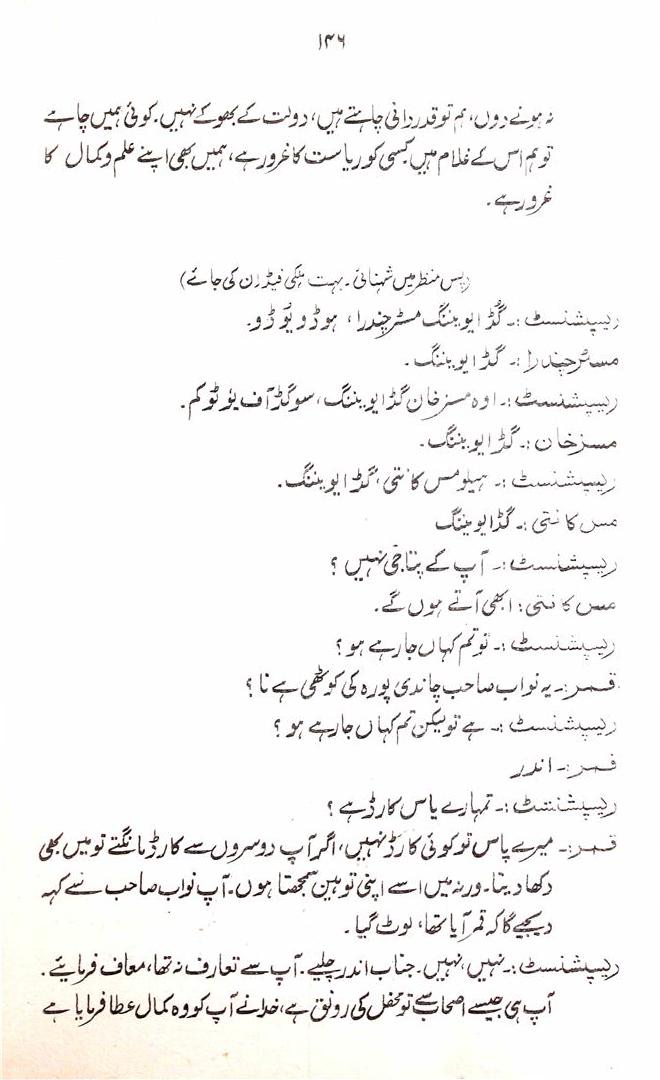 ۱۴۶
نہ ہونے دوں، ہم تو قدردانی چاہتے ہیں، دولت کے بھوکے نہیں۔ کوئی ہمیں چاہے
تو ہم اس کے غلام ہیں کسی کو ریاست کا غرور ہے، ہمیں بھی اپنے علم و کمال کا
غرور ہے۔
(پس منظر میں شہنائی۔ بہت ہلکی فیڈ ان کی جائے)
ریسپشنسٹ:۔ گڈ ایوبننگ مسٹر چندرا، ہو ڈو یو ڈو۔
مسٹر چندرا:۔ گڈ ایوبننگ۔
ریسپشنسٹ:۔ اوہ مسز خان گڈ ایوبننگ، سو گڈ آف یو ٹو کم۔
مسز خان:۔ گڈ ایوبننگ۔
ریسپشنسٹ:۔ ہیلو مس کانتی، گڈ ایوبننگ۔
مس کانتی:۔ گڈ ایوبینگ
ریسپشنسٹ:۔ آپ کے پتا جی نہیں؟
مس کانتی: ابھی آتے ہوں گے۔
ریسپشنسٹ:۔ تو تم کہاں جا رہے ہو؟
قمر:۔ یہ نواب صاحب چاندی پورہ کی کوٹھی ہے نا؟
ریسپشنسٹ:۔ ہے تو لیکن تم کہاں جا رہے ہو؟
قمر:۔ اندر
ریسپشنسٹ:۔ تمہارے پاس کارڈ ہے؟
قمر:۔ میرے پاس تو کوئی کارڈ نہیں، اگر آپ دوسروں سے کارڈ مانگتے تو میں بھی
دکھا دیتا۔ ورنہ میں اسے اپنی توہین سمجھتا ہوں۔ آپ نواب صاحب سے کہہ
دیجیے گا کہ قمر آیا تھا، لوٹ گیا۔
ریسپشنسٹ:۔ نہیں، نہیں۔ جناب اندر چلیے۔ آپ سے تعارف نہ تھا، معاف فرمایئے۔
آپ ہی جیسے اصحاب سے تو محفل کی رونق ہے، خدا نے آپ کو وہ کمال عطا فرمایا ہے